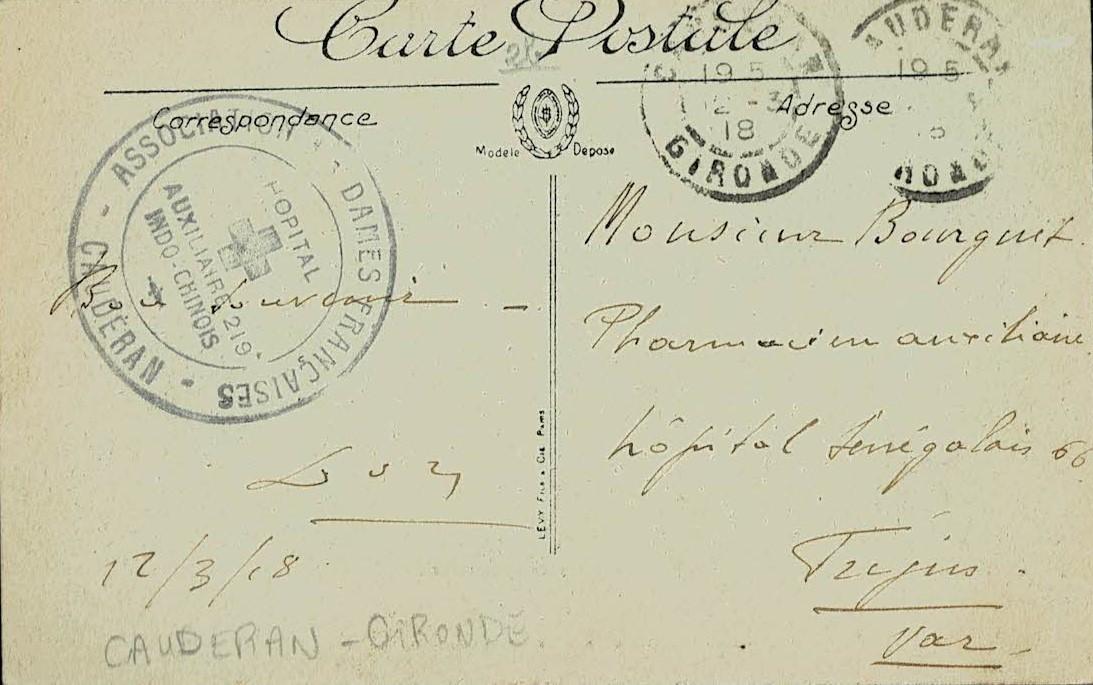 Carte Postale
Correspondance
Adresse
Modèle Déposé
LEVY Fils & Cie Paris
ASSOCIATION - DAMES FRANÇAISES - CAUDÉRAN -
HOPITAL
AUXILIAIRE 219
INDO-CHINOIS
CAUDERAN
195
12-3
18
GIRONDE
CAUDERAN
195
Bon Souvenir -
12/3/18
CAUDERAN - GIRONDE.
Monsieur Bourguet.
Pharmacien auxiliaire
hôpital Sénégalais 66
Fréjus.
Var -